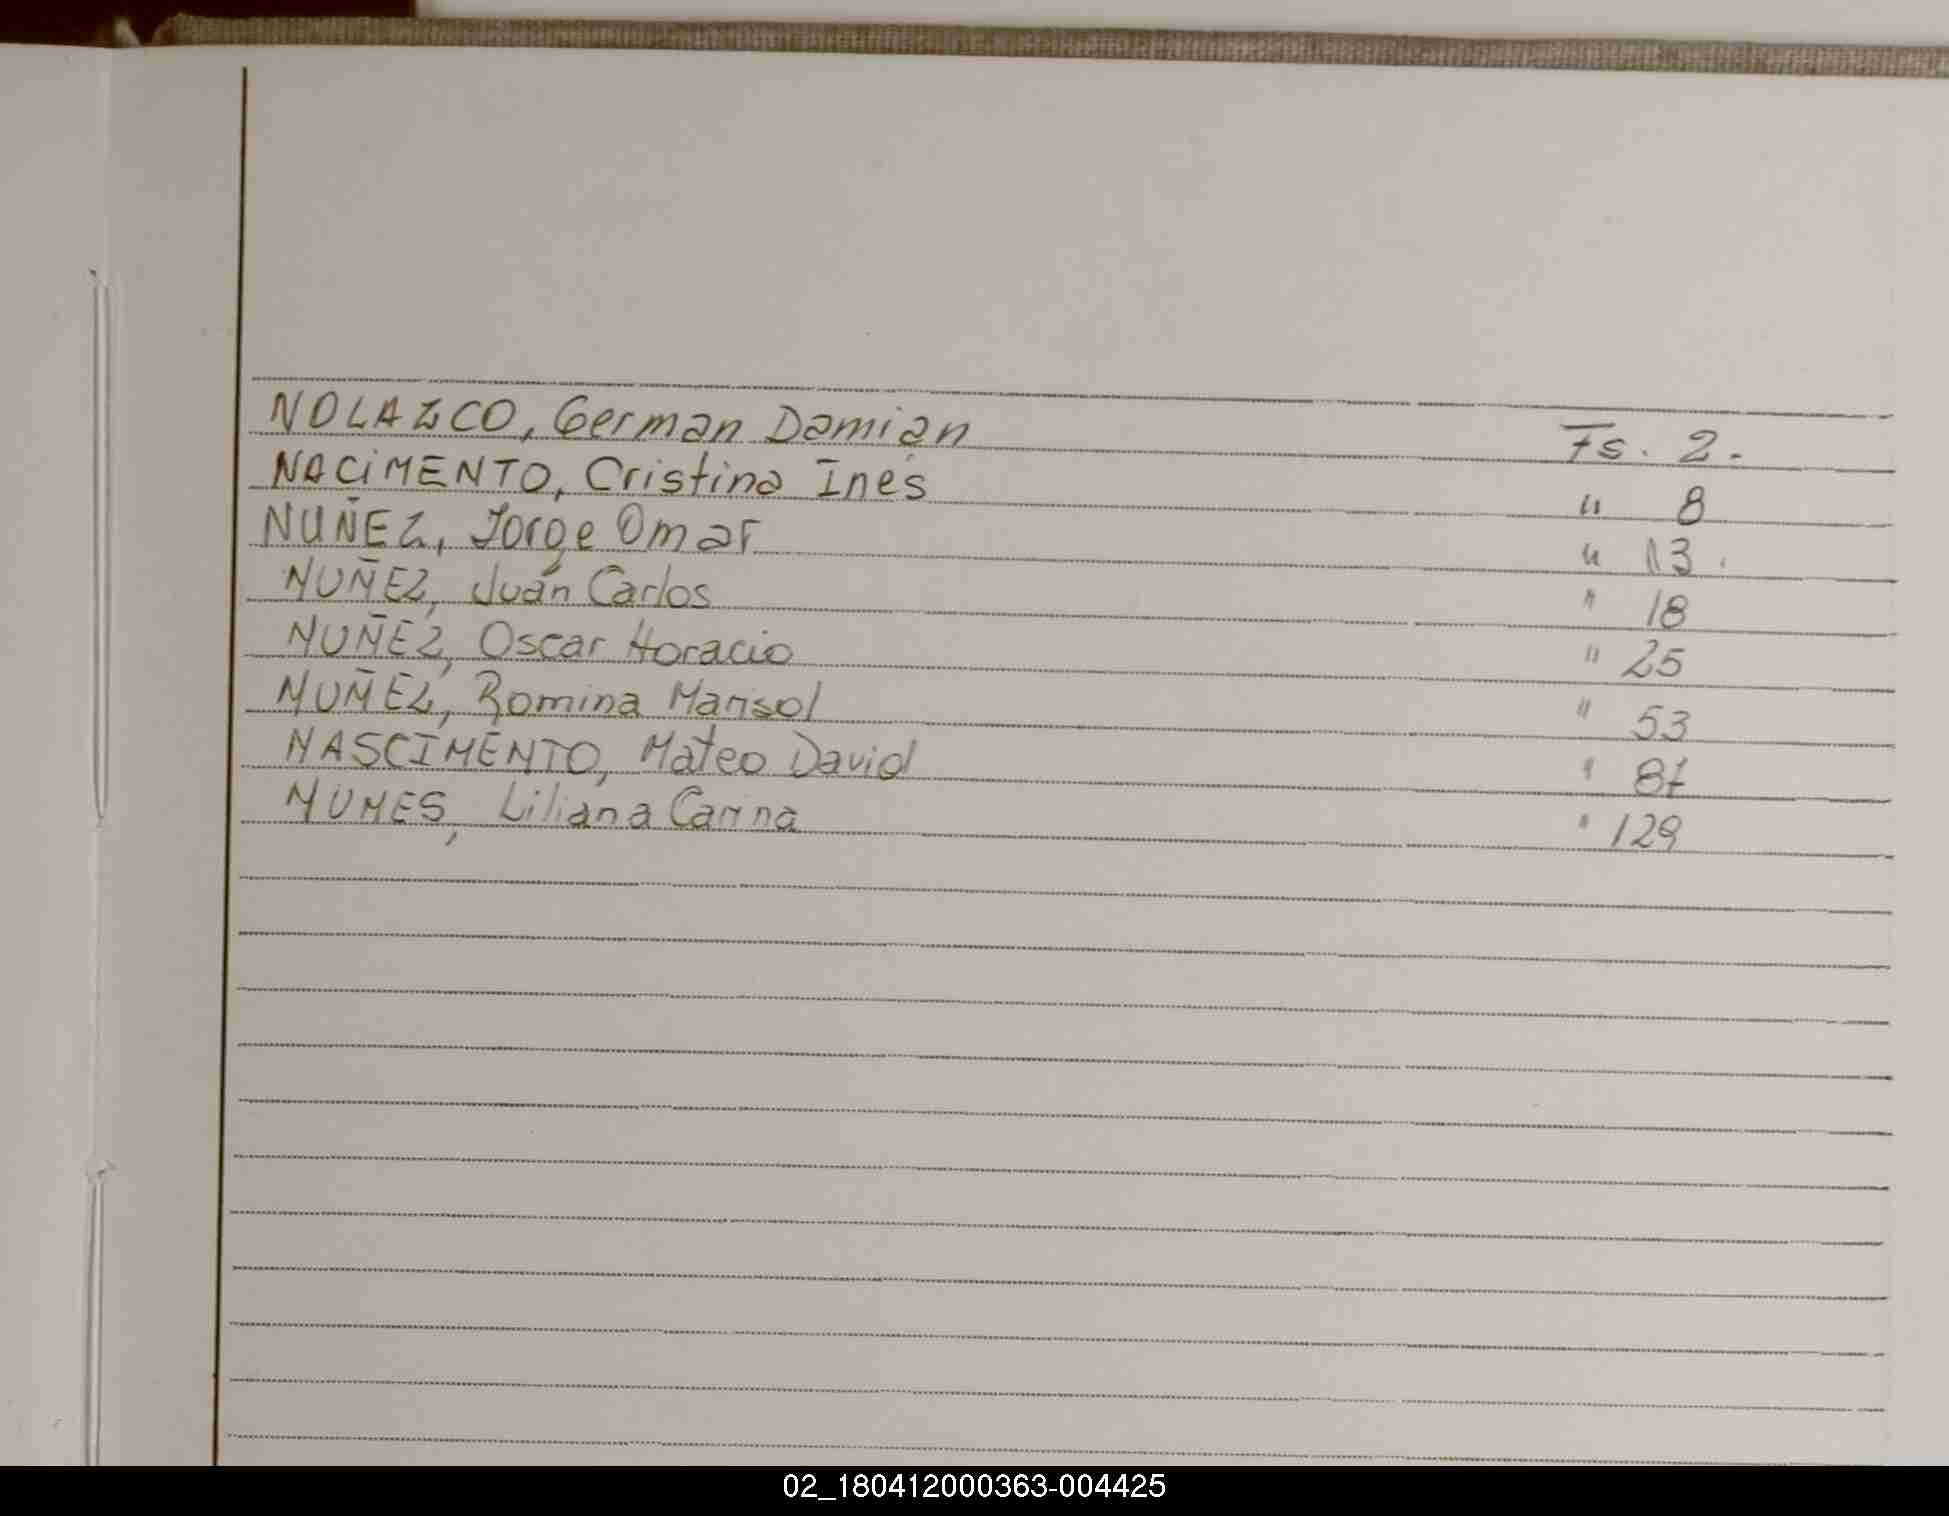 NOLAZCO, German Damian Fs. 2.
NACiMENTO, Cristina Inés " 8
NUÑEZ, Jorge Omar " 13.
NUÑEZ, Juán Carlos " 18
NUÑEZ, Oscar Horacio " 25
NUÑEZ, Romina Marisol " 53
NASCIMENTO, Mateo David " 87
NUNES, Liliana Carina " 129
02_180412000363-004425